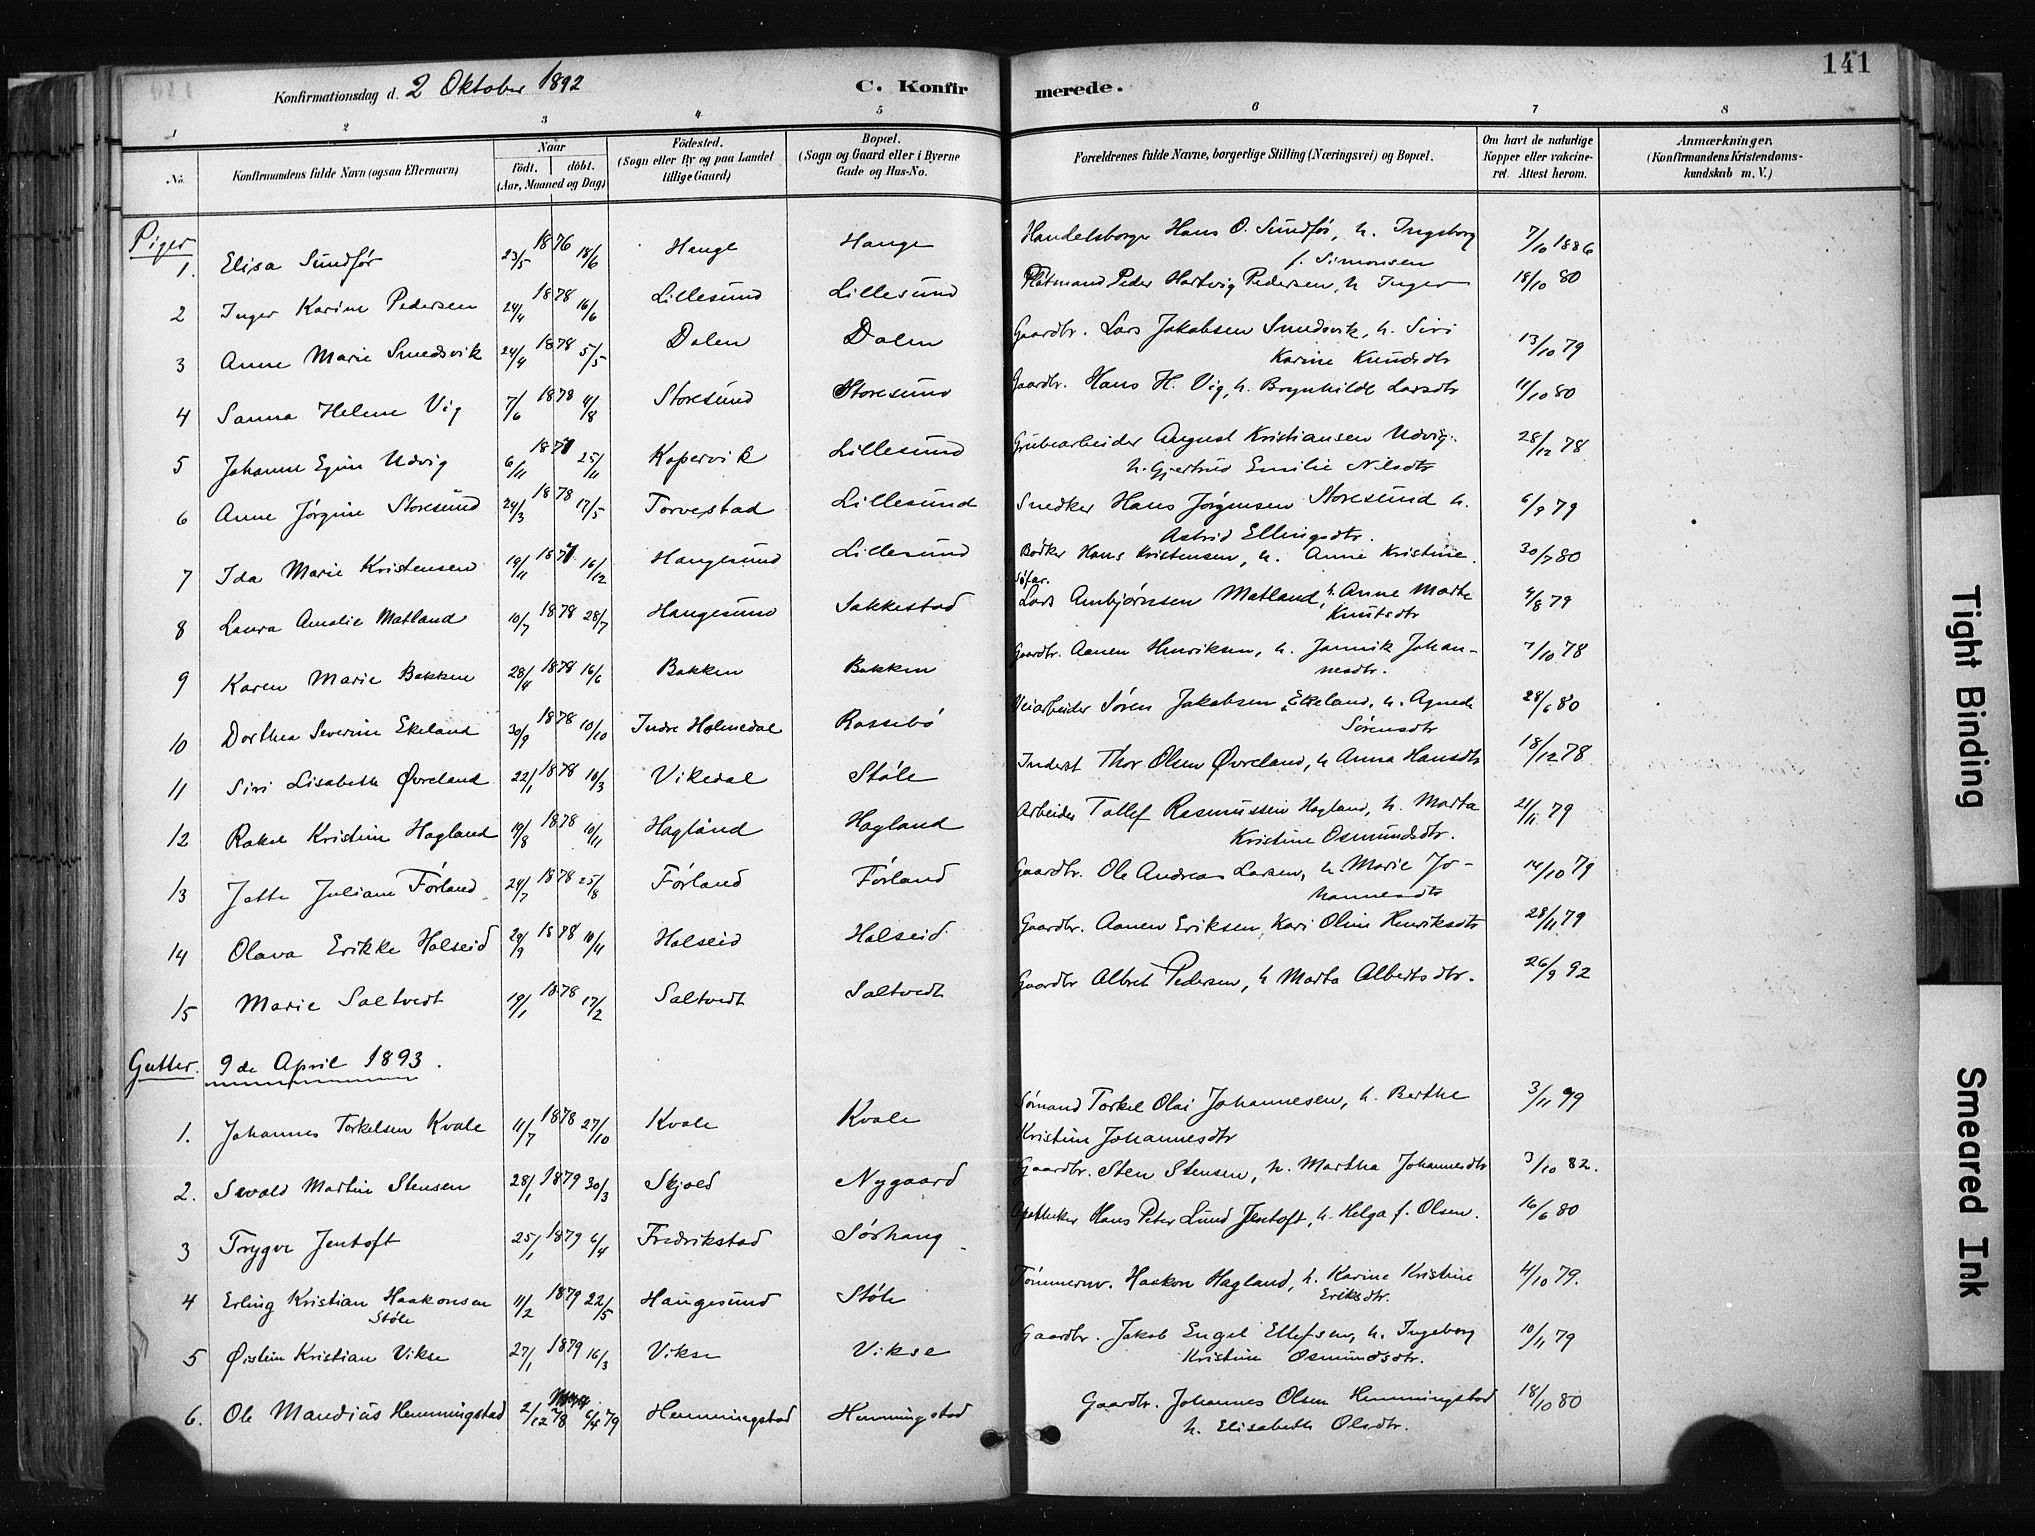 141
Konfirmationsdag d. 2 Oktober 1892
C. Konfirmerede.
1 2 3 4 5 6 7 8
No. Konfirmandens fulde Navn (ogsaa Efternavn) Naar födt. döbt. (Aar, Maaned og Dag) Födested. (Sogn eller By og paa Landet tillige Gaard) Bopæl. (Sogn og Gaard eller i Byerne Gade og Hus-No. Forældrenes fulde Navne, borgerlige Stilling (Næringsvei) og Bopæl. Om havt de naturlige Kopper eller vakcineret. Attest herom. Anmærkninger. (Konfirmandens Kristendomskundskab m. V.)
Piger
1. Elisa Sundför 23/5 1876 18/6 Hauge Hauge Handelsborger Hans O. Sundför, h. Ingeborg f. Simonsen 7/10 1886
2 Inger Karine Pedersen 24/4 1878 16/6 Lillesund Lillesund Peder Hartvig Pedersen, h Inger 18/10 80
3 Anne Marie Smedsvik 24/4 1878 5/5 Dalen Dalen Gaardbr. Lars Jakobsen Smedsvik, h. Siri Karine Knudsdtr 13/10 79
4 Sanna Helene Vig 7/6 1878 4/8 Storesund Storesund Gaardbr. Hans H. Vig, h. Brynhilde Larsdtr 11/10 80
5 Johanne Udvig 6/11 1877 25/11 Kopervik Lillesund Grubearbeider August Kristiansen Udvig. h. Gjertrud Emilie Nilsdtr 28/12 78
6 Anne Jörgine Storesund 24/3 1878 17/5 Torvestad Lillesund Snedker Hans Jörgensen Storesund h. Astrid Ellingsdtr. 6/9 79
7 Ida Marie Kristensen 19/11 1877 16/12 Haugesund Lillesund Bödker Hans Kristensen, h. Anne Kristine. 30/7 80
8 Laura Amalie Matland 10/7 1878 28/7 Haugesund Sakkestad Söfar. Lars Anbjörnsen Matland, h. Anne Marte Knutsdtr 4/8 79
9 Karen Marie Bakken 28/4 1878 16/6 Bakken Bakken Gaardbr. Aanen Henriksen, h. Jannik Johannesdtr. 7/10 78
10 Dorthea Severine Ekeland 30/9 1878 10/10 Indre Holmedal Rossebö Veiarbeider Sören Jakobsen Ekeland, h. Agnede Sörensdtr 28/6 80
11 Siri Lisabeth Øvreland 22/1 1878 10/3 Vikedal Støle Inderst Thor Olsen Øvreland, h Anna Hansdtr 18/12 78
12 Rakel Kristine Hagland 19/8 1878 10/11 Hagland Hagland Arbeider Tollef Rasmussen Hagland, h. Marta Kristine Osmundsdtr. 21/11 79
13 Jette Juliane Førland 24/7 1878 25/8 Førland Førland Gaardbr. Ole Andreas Larsen, h. Marie Johannesdtr 14/10 79
14 Olava Erikke Halseid 29/9 1878 10/11 Halseid Halseid Gaardbr. Aanen Eriksen, Kari Oline Henriksdtr 28/11 79
15 Marie Saltvedt 19/1 1878 17/2 Saltvedt Saltvedt Gaardbr Albret Pedersen, h Marta Albertsdtr. 26/9 92
Gutter. 9de April 1893.
1. Johannes Torkelsen Kvale 11/7 1878 27/10 Kvale Kvale Sømand Torkel Olai Johannesen, h. Berthe Kristine Johannesdtr 3/11 99
2. Sevald Martin Stensen 28/1 1879 30/3 Skjold Nygaard Gaardbr. Sten Stensen, h. Martha Johannesdtr 3/10 82.
3 Trygve Jentoft 25/1 1879 6/4 Fredrikstad Sørhaug Apotheker Hans Peter Lund Jentoft, h. Helga f. Olsen. 16/6 80
4 Erling Kristian Haakonsen Støle 11/2 1879 22/5 Haugesund Støle Tømmermv. Haakon Hagland, h. Karine Kristine Eriksdtr. 4/10 79.
5 Øistein Kristian Vikse 27/1 1879 16/3 Vikse Vikse Gaardbr. Jakob Engel Ellefsen, h. Ingeborg Kristine Osmundsdtr. 10/11 79
6. Ole Mandius Hemmingstad 2/12 78 6/4 79 Hemmingstad Hemmingstad Gaardbr. Johannes Olsen Hemmingstad h. Elisabeth Olsdtr. 18/10 80
Tight Binding
Smeared Ink